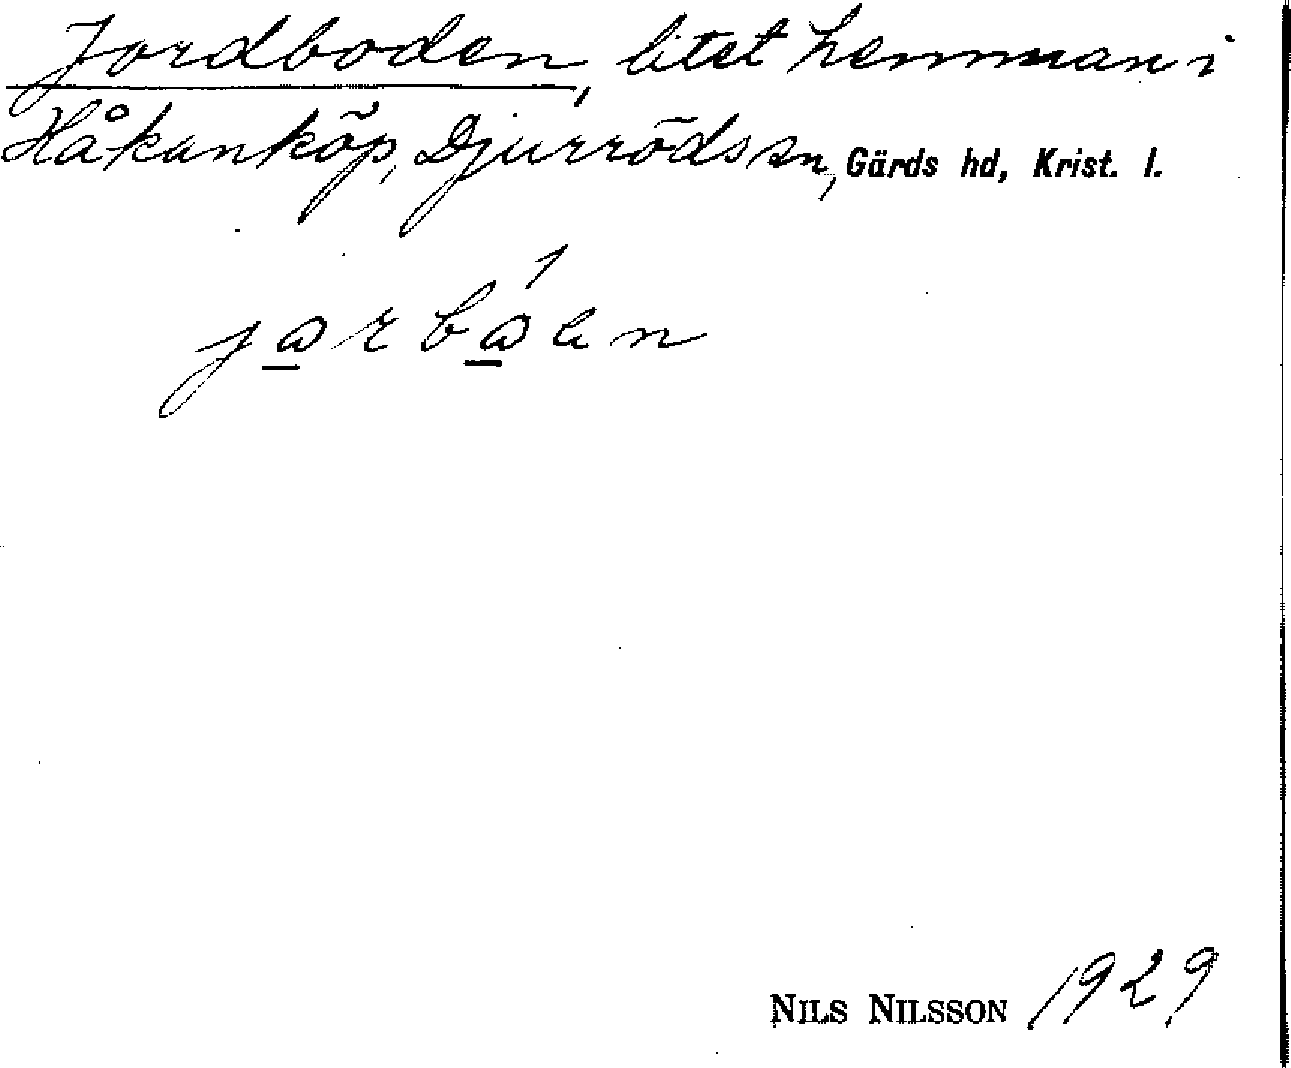 Jordboden, litet hemman i
Håkanköp, Djurröds sn, Gärds hd, Krist. l.
NILS NILSSON 1929